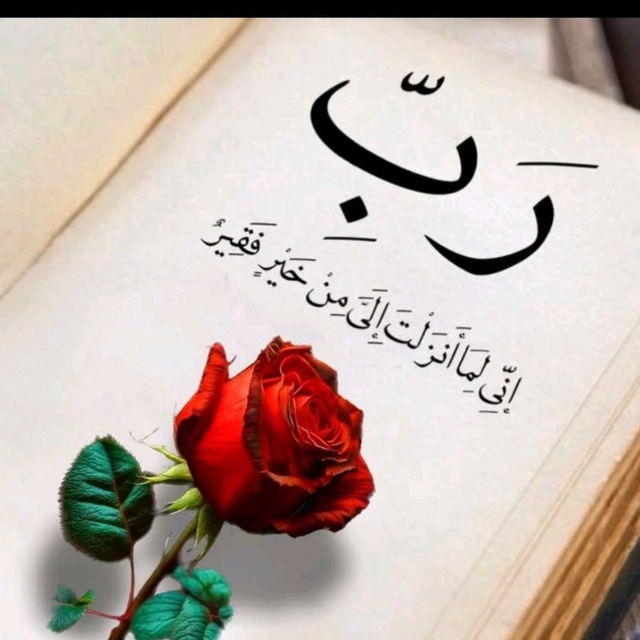 رَبِّ
إِنِّي لِمَا أَنزَلْتَ إِلَيَّ مِنْ خَيْرٍ فَقِيرٌ